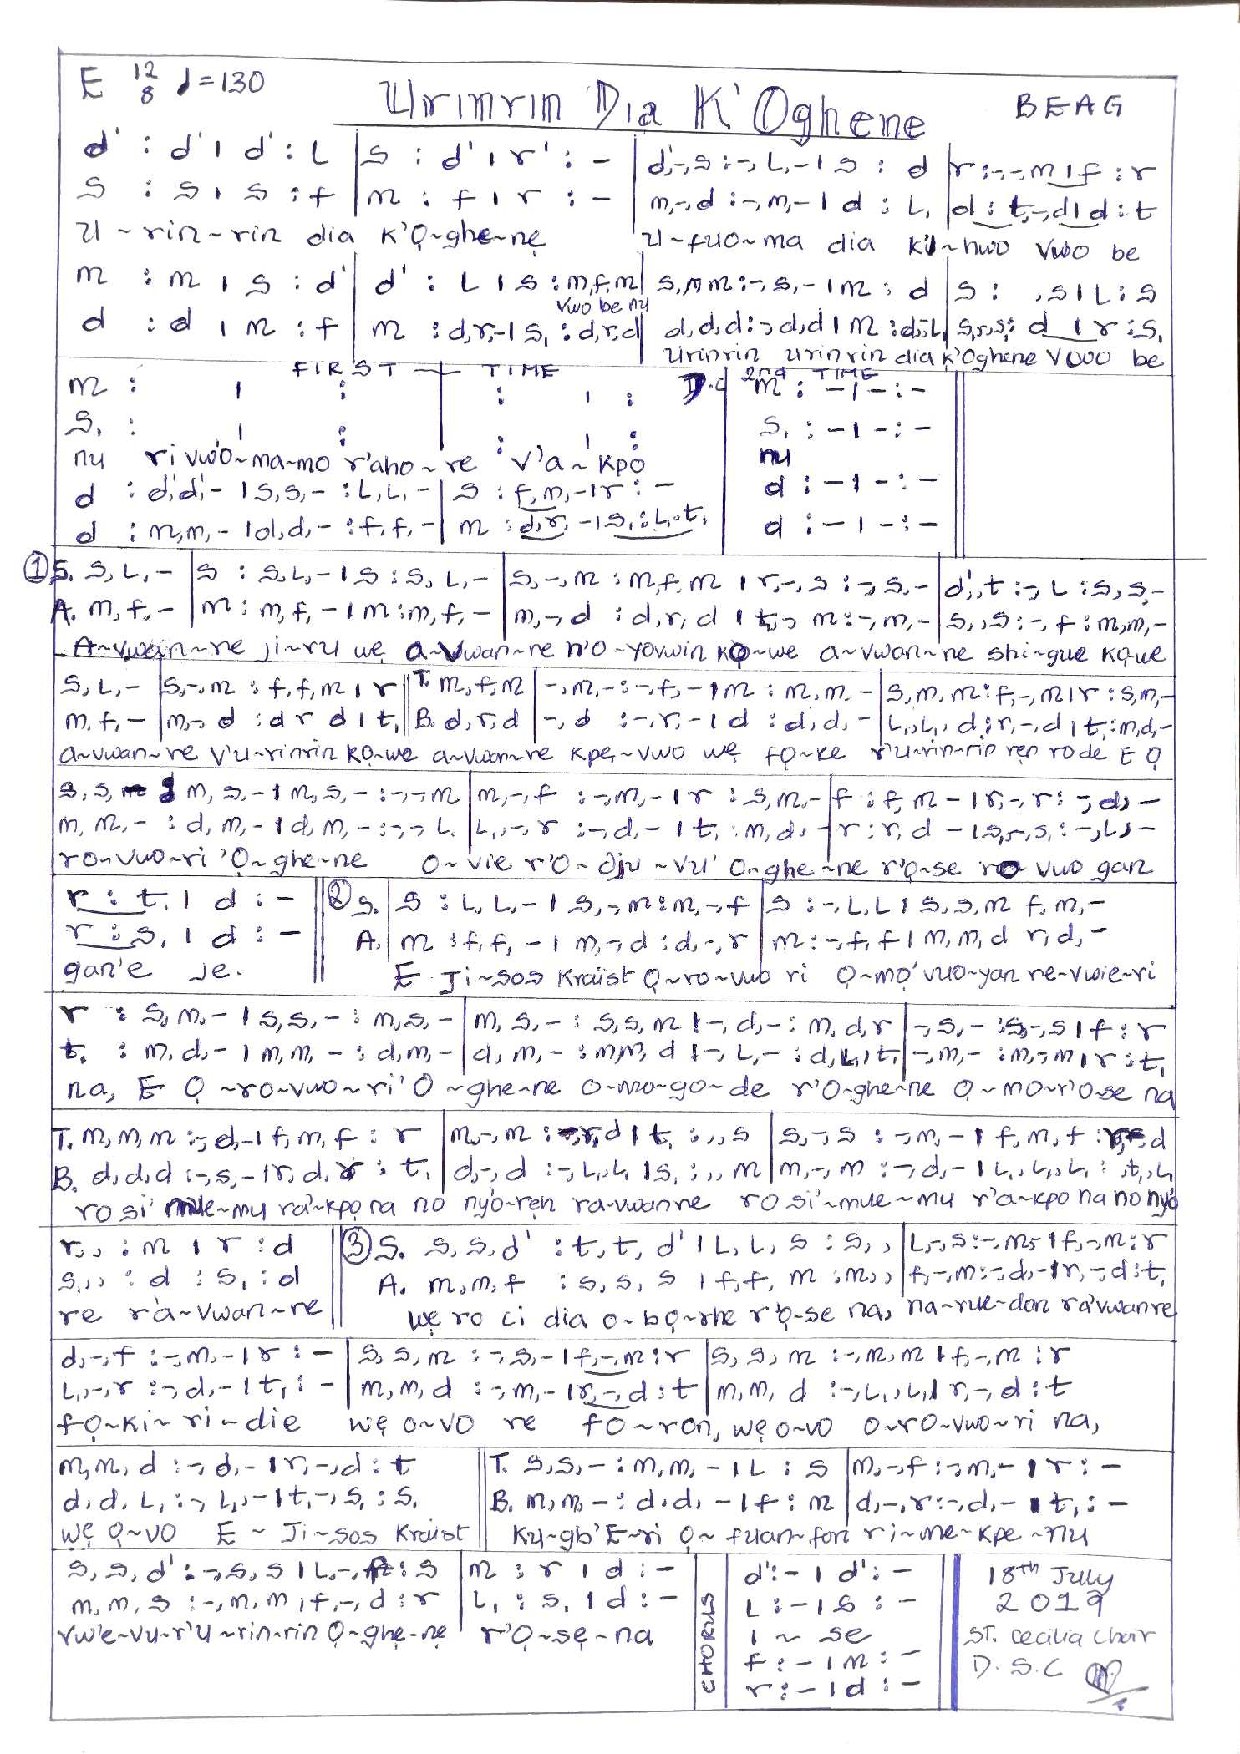 E 12/8 ♩=130
Urinrin Dia K'Oghene
BEAG
d' : d' | d' : L | s : d' | r' : - | d',-,s :-,L,-| s : d | r :-,-m | f : r
s : s | s : f | m : f | r : - | m,-,d :-,m,-| d : L, | d : t,-,d | d : t
U~rin~rin dia K'Ọ~ghe~nẹ U~fuo~ma dia K'i~hwo vwo be
m : m | s : d' | d' : L | s : m,f,m | s,m m :-,s,-| m : d | s : ,s | L : s
vwo be nu
d : d | m : f | m : d,r,-| s, : d,r,d | d,d,d :-,d,d | m : d,:L, | s,s,s, : d | r : s,
Urinrin urinrin dia k'Oghene vwo be
FIRST TIME D.C 2nd TIME
m : | : | : | : m : -|- : -
s, : | : | : | : s, : -|- : -
nu ri vwo~ma~mo r'aho~re v'a~kpọ nu
d : d',d',-| s,s,- : L,L,-| s : f,m,-| r : - d : -|- : -
d : m,m,-| d,d,- : f,f,-| m : d,r,-| s, : L,.t, d : -|- : -
① S. s,L,- | s : s,L,-| s : s,L,-| s,-,m : m,f,m | r,-,s :-,s,-| d',,t :-,L : s,s,-
A. m,f,- | m : m,f,-| m : m,f,-| m,-,d : d,r,d | t,,- m :-,m,-| s,,s :-,f : m,m,-
A~vwan~re ji~ru wẹ a~vwan~re n'o~yovwin kọ~we a~vwan~ne shi~gue kọwe
s,L,- | s,-,m : f,f,m | r || T. m,f,m | -,m,- :-,f,-| m : m,m,-| s,m,m : f,-,m | r : s,m,-
m,f,- | m,-,d : d r d | t, || B. d,r,d | -,d :-,r,-| d : d,d,-| L,,L,,d : r,-,d | t, : m,d,-
a~vwan~re v'u~rinrin kọ~we a~vwan~re kpẹ~vwo wẹ fọ~ke r'u~rin~rin rẹn rode E Ọ
m,m,- : d,m,-| d,m,- :-,-,L, | L,,-,r :-,d,-| t, : m,d,-| r : r,d -| s,,-,s, :-,L,-
ro~vwo~ri 'Ọ~ghe~ne o~vie r'O~dju~vu' O~ghe~ne r'ọ~se ro vwo gan
r : t, | d : - || ② S. | s : L,L,-| s,-,m : m,-,f | s :-,L,L | s,s,m f,m,-
r : s, | d : - A. | m : f,f,-| m,-,d : d,-,r | m :-,f,f | m,m,d r,d,-
gan'e je. E Ji~sos Kraist Ọ~ro~vwo ri Ọ~mọ'vuo~yan re~vwie~ri
r : s,m,-| s,s,- : m,s,-| m,s,- : s,s,m |-,d,- : m,d,r |-,s,- : s,-,s | f : r
t, : m,d,-| m,m,- : d,m,-| d,m,- : m,m,d |-,L,- : d,L,,t, |-,m,- : m,-,m | r : t,
na, E Ọ~ro~vwo~ri' O~ghe~ne o~wo~go~de r'O~ghe~ne Ọ~mo~r'o~se na
T. m,m,m :-,d,-| f,m,f : r | m,-,m : r,d | t, : ,,s | s,-,s :-,m,-| f,m,f : d
B. d,d,d :-,s,-| r,d,r : t, | d,-,d :-,L,L, | s, : ,,m | m,-,m :-,d,-| L,,L,,L, : t,,L
ro si' mue~mu ra'~kpọ na no nyo~rẹn ra~vwanne ro si'~mue~mu r'a~kpo na no nyo
r,, : m | r : d || ③ S. s,s,d' : t,t,d' | L,L,s : s,, | L,-,s :-,m,-| f,-,m : r
s,,, : d : s, : d A. m,m,f : s,s,s | f,f,m : m,, | f,-,m :-,d,-| r,-,d : t,
re ra~vwan~re wẹ ro ci dia o~bọ~rhe r'ọ~se na, na~rue~don ra'vwanre
d,-,f :-,m,-| r : - | s,s,m :-,s,-| f,-,m : r | s,s,m :-,m,m | f,-,m : r
L,,-,r :-,d,-| t, : - | m,m,d :-,m,-| r,-,d : t | m,m,d :-,L,,L, | r,-,d : t
fọ~ki~ri~die wẹ o~vo re fo~ron, wẹ o~vo o~ro~vwo~ri na,
m,m,d :-,d,-| r,-,d : t || T. s,s,- : m,m,-| L : s | m,-,f :-,m,-| r : -
d,d,L, :-,L,,-| t,-,s, : s, || B. m,m,- : d,d,-| f : m | d,-,r :-,d,-| t, : -
wẹ o~vo E~Ji~sos Kraist Ku~gb'E~ri Ọ~fuan~fon ri~me~kpe~nu
s,s,d' :-,s,s | L,-, : s | m : r | d : - d' : -| d' : -
m,m,s :-,m,m | f,-,d : r | L, : s, | d : - L : -| s : -
vw'e~vu~r'u~rin~rin Ọ~ghẹ~nẹ r'Ọ~sẹ~na
CHORUS
I~se
f : -| m : -
r : -| d : -
18th July
2019
ST. Cecilia Choir
D.S.C